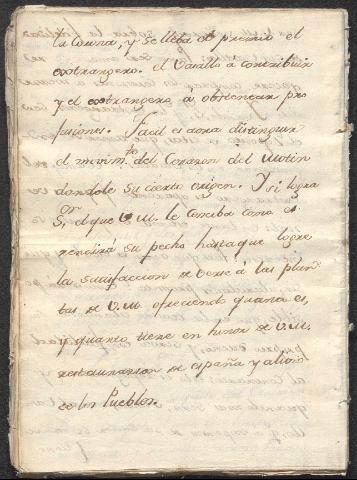 la Corona, y se lleba el premio el
extrangero. el Vasallo a contribuir
y el extrangero á obstentar pro
fusiones. Facil es aora distinguir
el movim.to del Corazon del Motin
dandole su cierto origen. Y si logra
S.or el que V.M. le conciba como es
rendirá su pecho hasta que logre
la satisfaccion de verse á las plan
tas de V.M. ofreciend quanto es,
y quanto tiene en honor de V.M.
restauracion de españa y alivio
de los Pueblos.